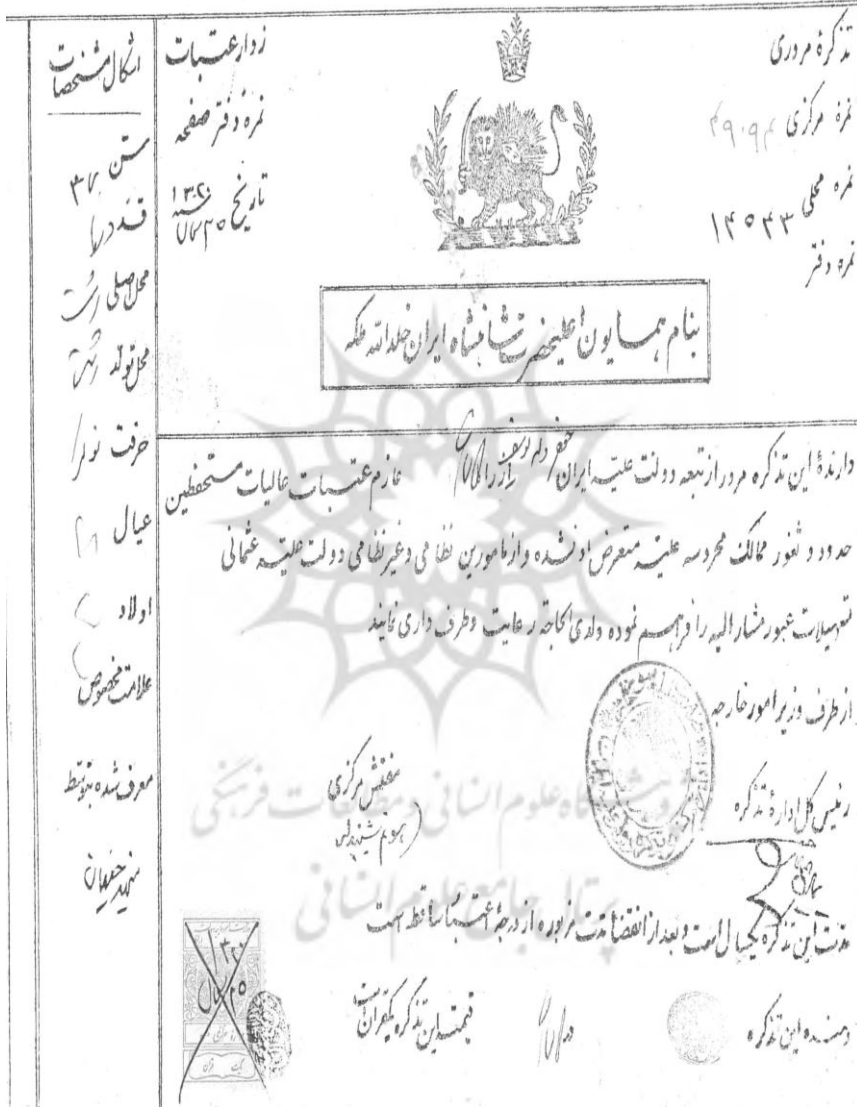 تذکرهٔ مروری
نمرهٔ مرکزی
نمره محلی ۱۴۵۴۳
نمره دفتر
زوار عتبات
نمره دفتر صفحه
تاریخ ۱۳۲۰
بنام همایون اعلیحضرت شاهنشاه ایران خلدالله ملکه
دارندهٔ این تذکره مرور از تبعه دولت علیه ایران عازم عتبات عالیات مستحفظین
حدود و ثغور ممالک محروسه علیه متعرض او نشده و از مامورین نظامی و غیر نظامی دولت علیه عثمانی
تسهیلات عبور مشارالیه را فراهم نموده ولدی الحاجة رعایت و طرف داری نمایند
از طرف وزیر امور خارجه
رئیس کل ادارهٔ تذکره
مفتش مرکزی
مدت این تذکره یکسال است و بعد از انقضا مدت مزبوره از درجهٔ اعتبار ساقط است
دهنده این تذکره
قیمت این تذکره یکقران است
اشکال مشخصات
سن ۳۷
قد
محل اصلی رشت
محل تولد رشت
حرفت نوکر
عیال
اولاد
علامت مخصوص
معرف شده بتوسط
پژوهشگاه علوم انسانی و مطالعات فرهنگی
پرتال جامع علوم انسانی